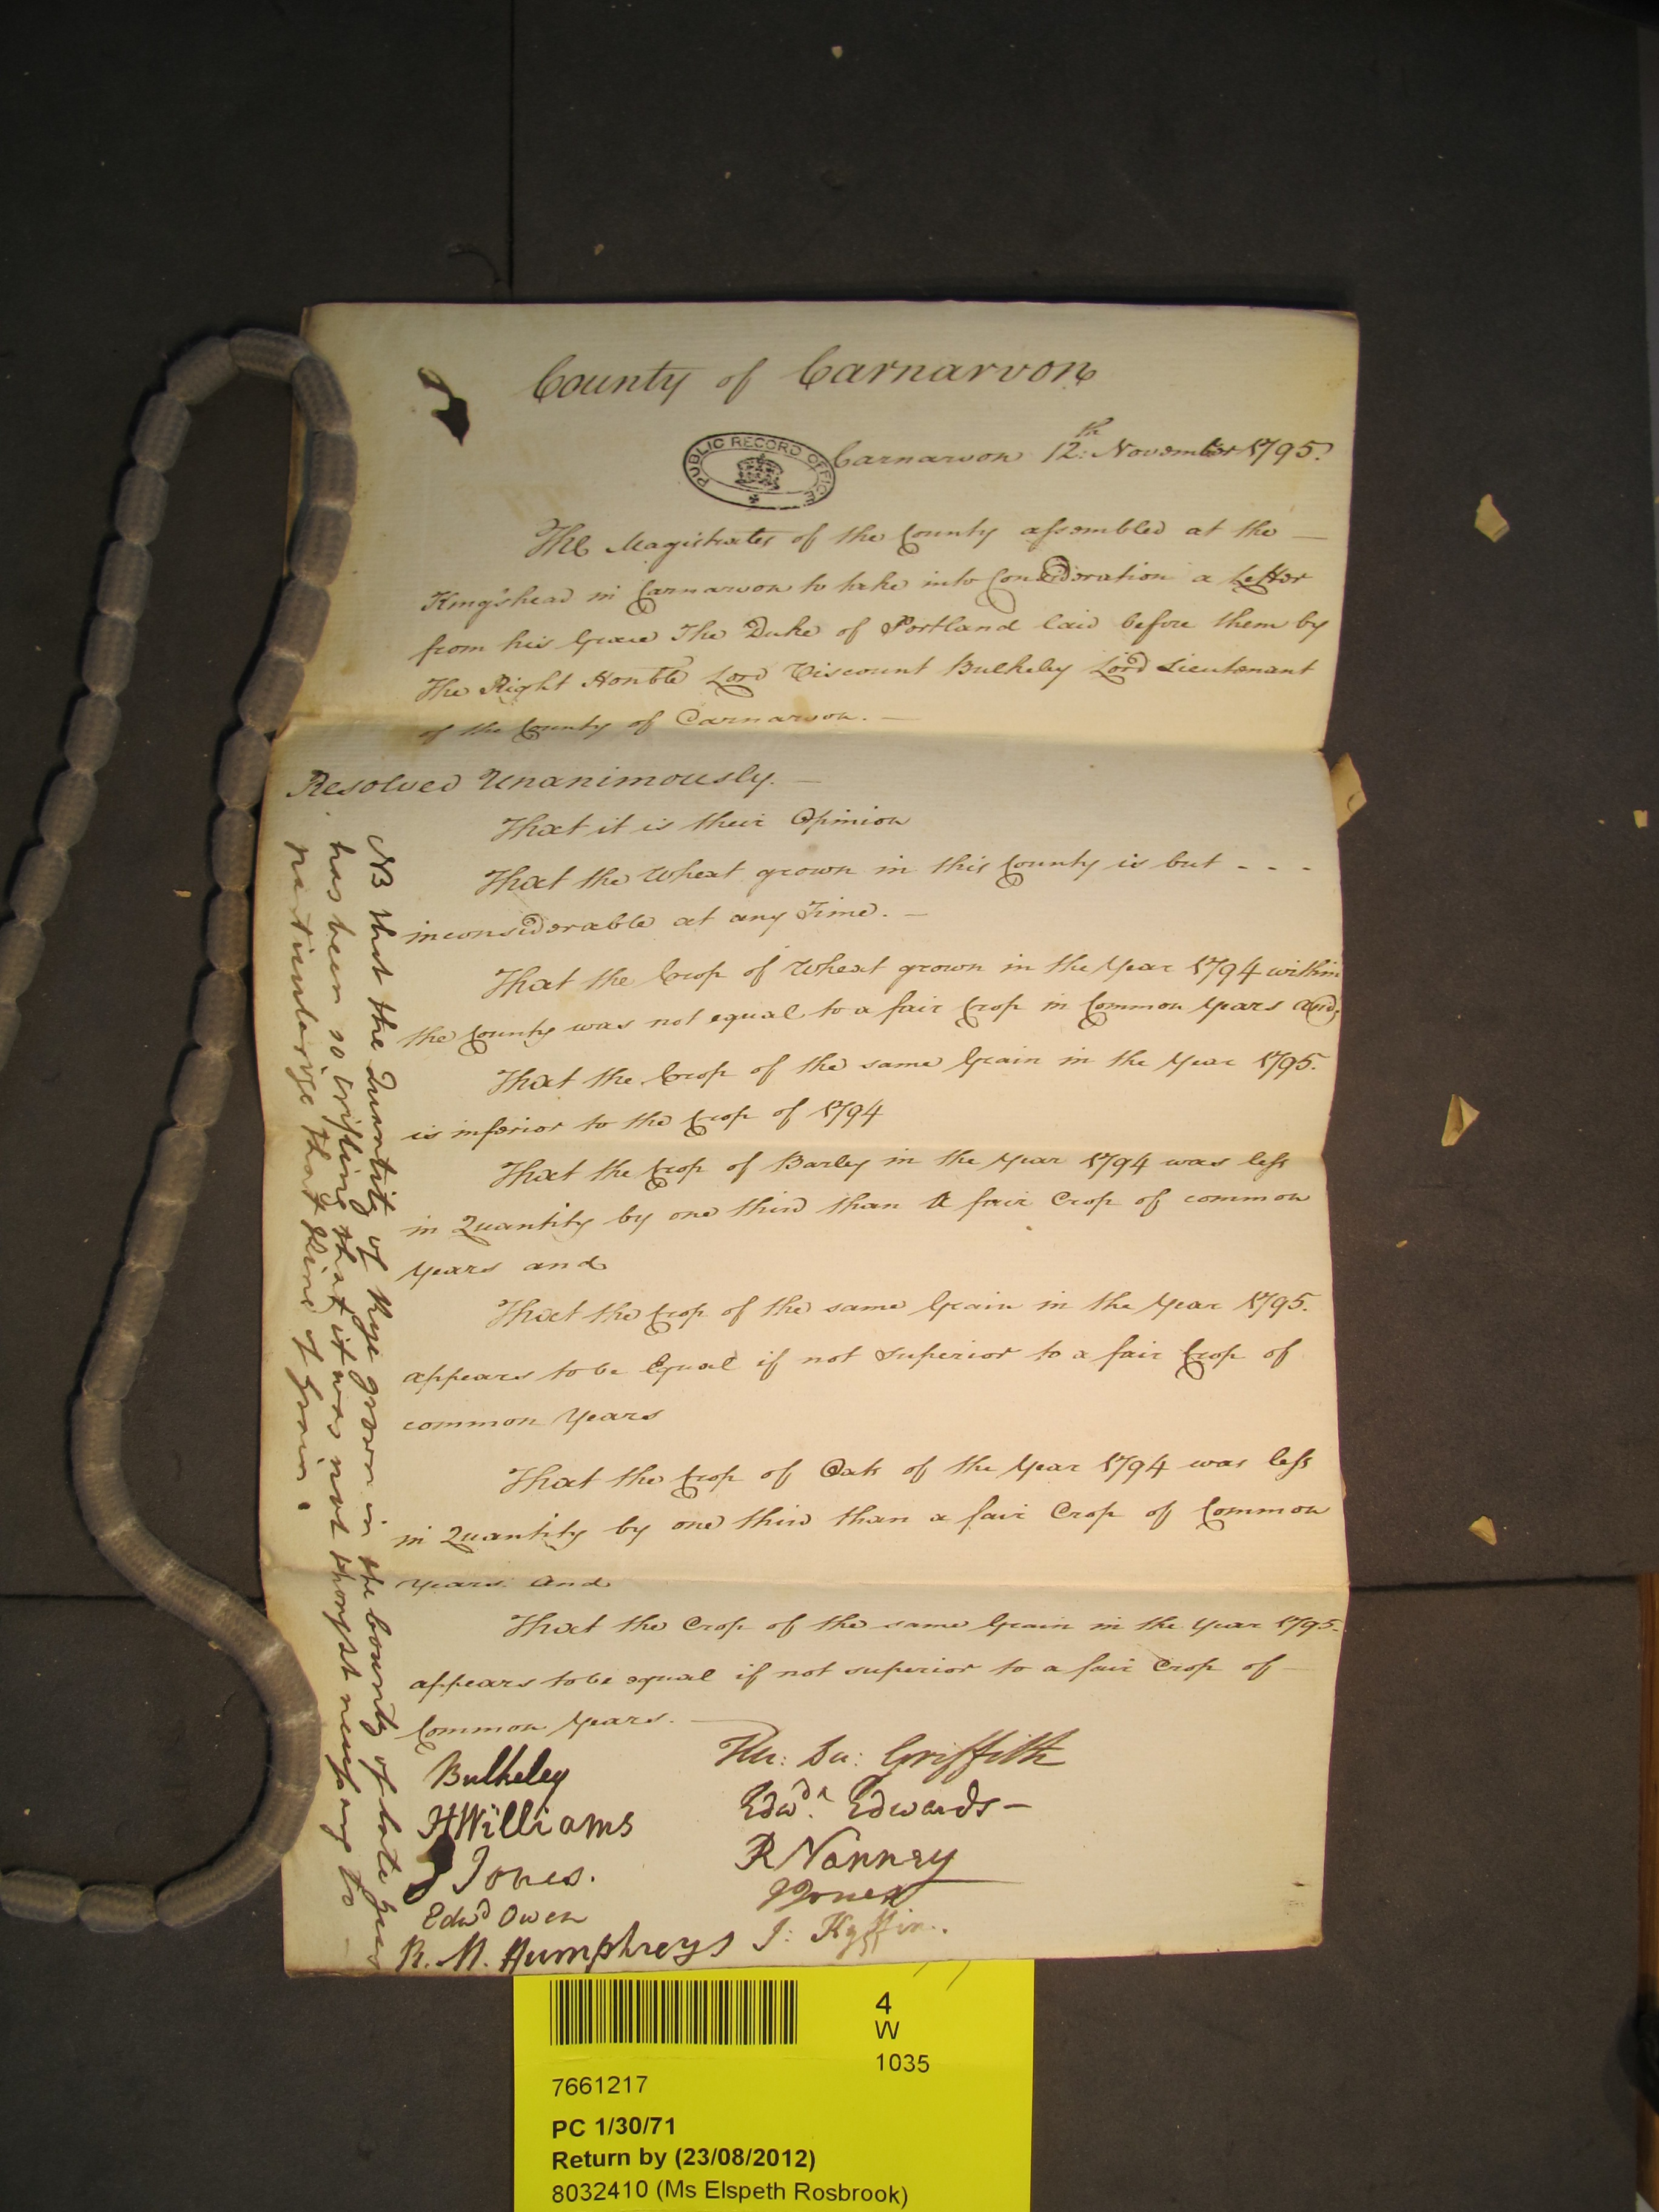 County of Carnarvon
PUBLIC RECORD OFFICE
Carnarvon 12th. November 1795.
The Magistrates of the County assembled at the —
Kingshead in Carnarvon to take into Consideration a Letter
from his Grace The Duke of Portland laid before them by
The Right Honble Lord Viscount Bulkeley Lord Lieutenant
of the County of Carnarvon. —
Resolved Unanimously. —
That it is their Opinion
That the Wheat grown in this County is but - - -
inconsiderable at any Time. —
That the Crop of Wheat grown in the Year 1794 within
the County was not equal to a fair Crop in Common Years and,
That the Crop of the same Grain in the Year 1795.
is inferior to the Crop of 1794
That the Crop of Barley in the Year 1794 was less
in Quantity by one third than a fair Crop of common
Years and
That the Crop of the same Grain in the Year 1795.
appears to be Equal if not Superior to a fair Crop of
common Years
That the Crop of Oats of the Year 1794 was less
in Quantity by one third than a fair Crop of Common
Years. And
That the Crop of the same Grain in the Year 1795.
appears to be equal if not superior to a fair Crop of —
Common Years. —
NB that the Quantity of Rye grown in the County of late Years
has been so trifling that it was not thought necessary to —
particularize that Kind of Grain.
Bulkeley
HWilliams
J Jones.
Edwd Owen
R. M. Humphreys
Griffith
Edwd. Edwards —
R Nanney
J Jones
J: Kyffin.
4
W
1035
7661217
PC 1/30/71
Return by (23/08/2012)
8032410 (Ms Elspeth Rosbrook)